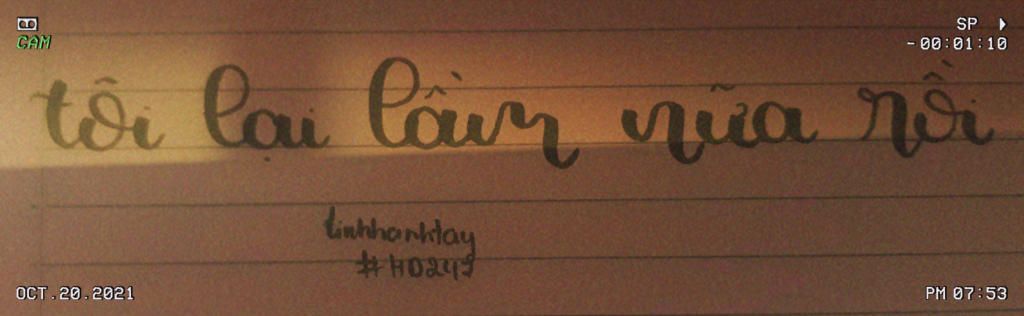 SP
CAM
-00:01:10
tôi lại lầm nữa rồi
tinhhanktay
#HD247
OCT.20.2021
PM 07:53